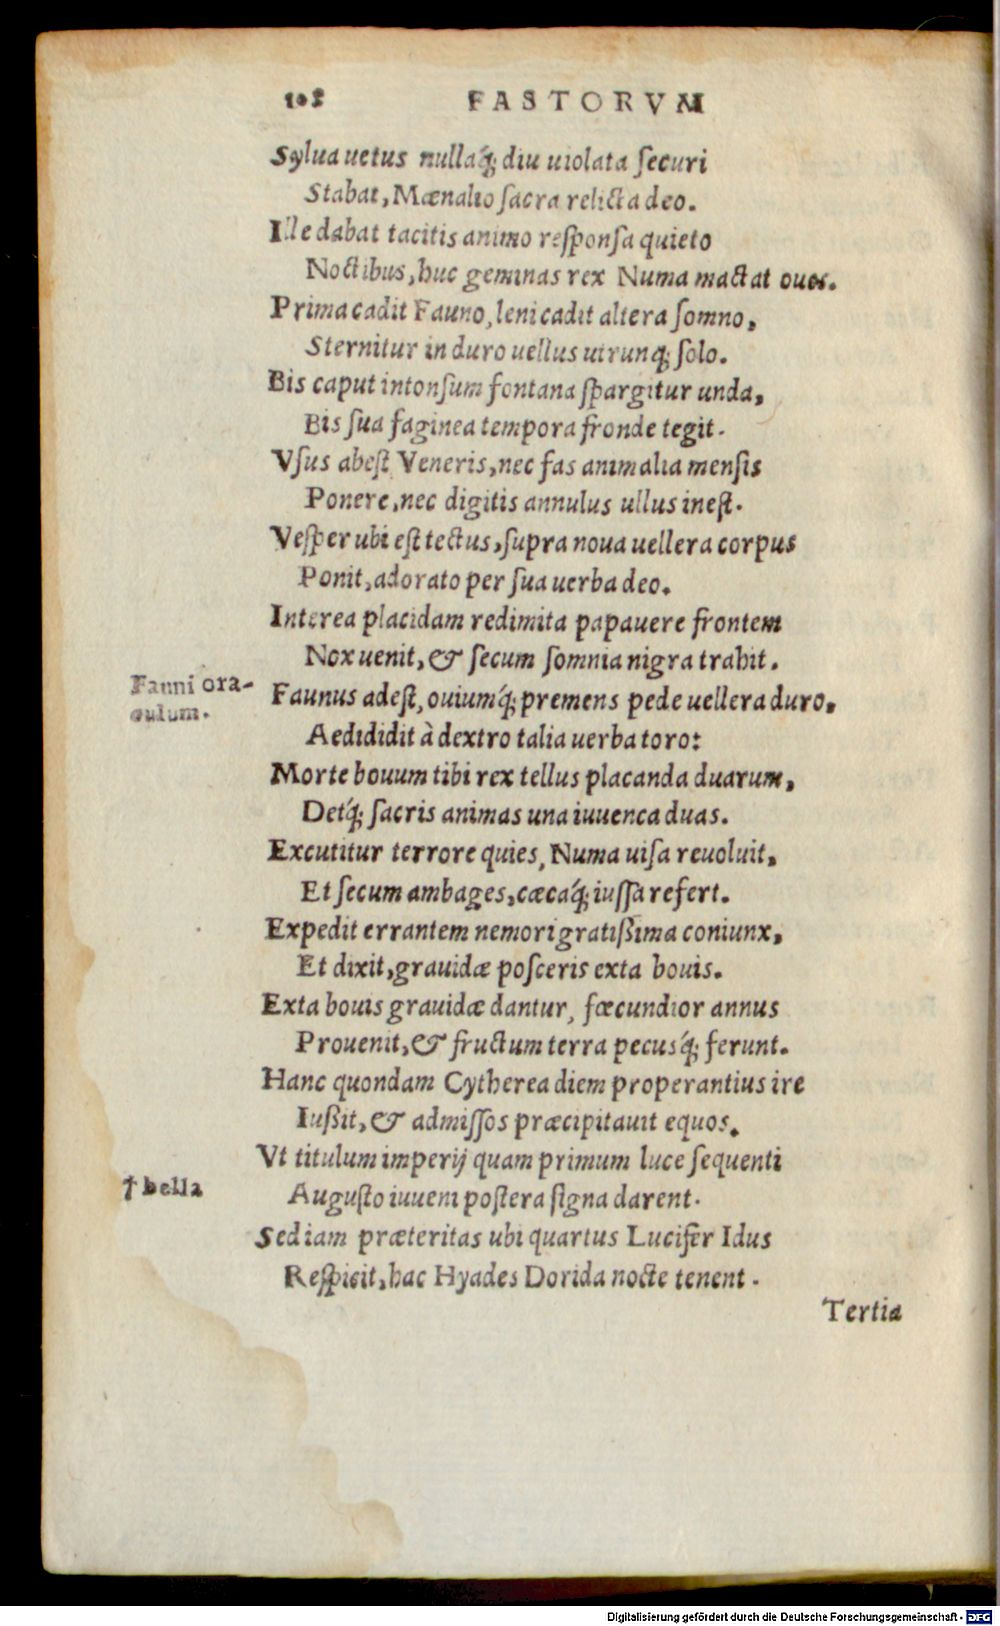 108 FASTORVM
Sylua uetus nullaq́; diu uiolata ſecuri
Stabat, Mænalio ſacra relicta deo.
Ille dabat tacitis animo reſponſa quieto
Noctibus, huc geminas rex Numa mactat oues.
Prima cadit Fauno, leni cadit altera ſomno,
Sternitur in duro uellus utrunq; ſolo.
Bis caput intonſum fontana ſpargitur unda,
Bis ſua faginea tempora fronde tegit.
Vſus abeſt Veneris, nec fas animalia menſis
Ponere, nec digitis annulus ullus ineſt.
Veſper ubi eſt tectus, ſupra noua uellera corpus
Ponit, adorato per ſua uerba deo.
Interea placidam redimita papauere frontem
Nox uenit, & ſecum ſomnia nigra trahit.
Fauni ora-
culum.
Faunus adeſt, ouiumq́; premens pede uellera duro,
Aedididit à dextro talia uerba toro:
Morte bouum tibi rex tellus placanda duarum,
Detq́; ſacris animas una iuuenca duas.
Excutitur terrore quies, Numa uiſa reuoluit,
Et ſecum ambages, cæcaq́; iuſſa refert.
Expedit errantem nemori gratißima coniunx,
Et dixit, grauidæ poſceris exta bouis.
Exta bouis grauidæ dantur, fœcundior annus
Prouenit, & fructum terra pecusq́; ferunt.
Hanc quondam Cytherea diem properantius ire
Iußit, & admiſſos præcipitauit equos.
Vt titulum imperij quam primum luce ſequenti
† bella
Auguſto iuueni poſtera ſigna darent.
Sed iam præteritas ubi quartus Lucifer Idus
Reſpicit, hac Hyades Dorida nocte tenent.
Tertia
Digitalisierung gefördert durch die Deutsche Forschungsgemeinschaft - DFG